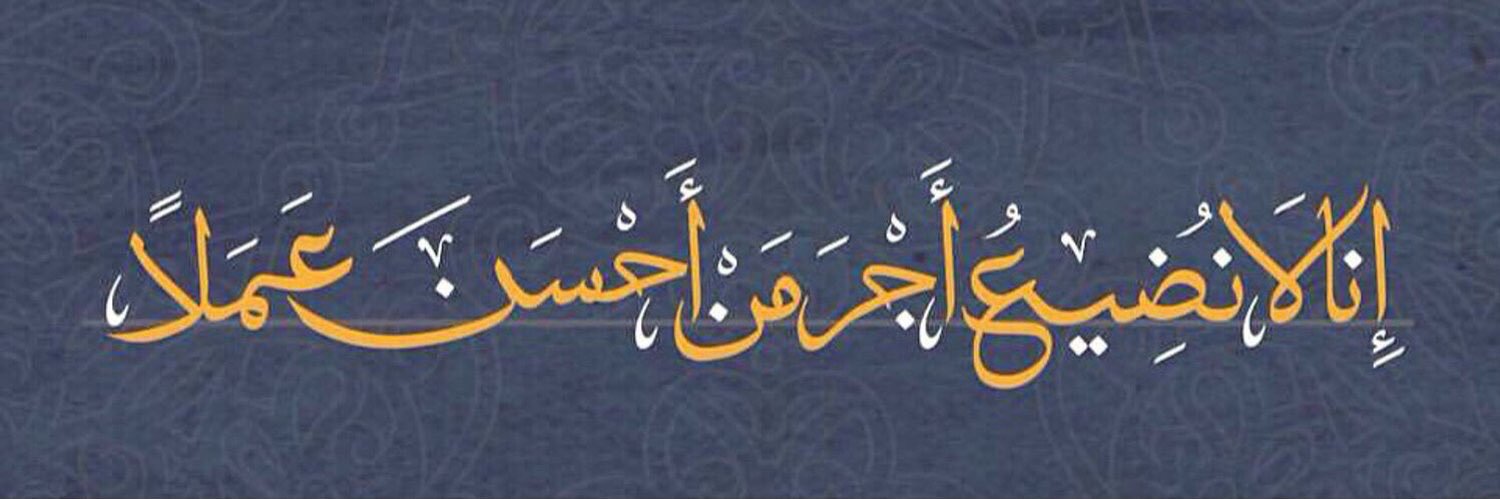 إِنا لَا نُضِيعُ أَجْرَ مَنْ أَحْسَنَ عَمَلاً